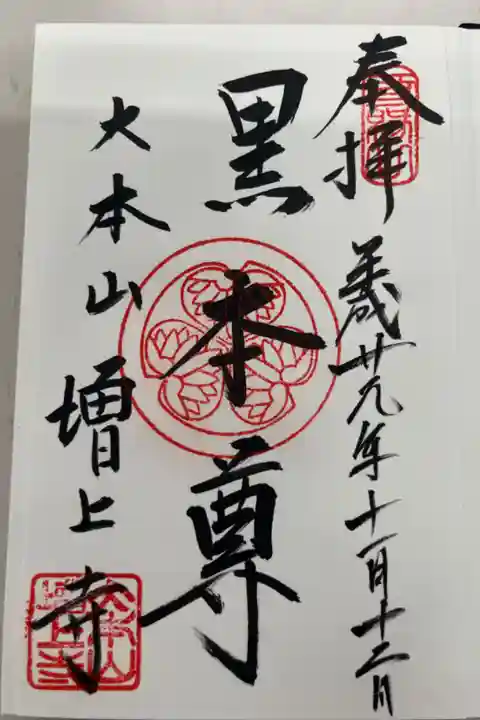 奉拝 平成廿九年十一月十二日
黒本尊
大本山 増上寺